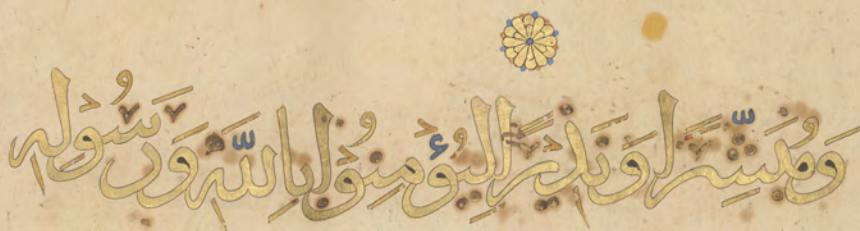 وَمُبَشِّرًا وَنَذِيرًا لِتُؤْمِنُوا بِاللَّهِ وَرَسُولِهِ